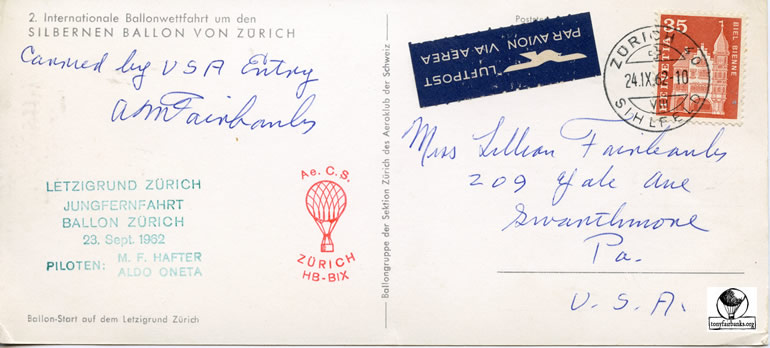 2. Internationale Ballonwettfahrt um den
SILBERNEN BALLON VON ZÜRICH
Carried by USA Entry
A M Fairbanks
LETZIGRUND ZÜRICH
JUNGFERNFAHRT
BALLON ZÜRICH
23. Sept. 1962
PILOTEN: M. F. HAFTER
ALDO ONETA
Ae. C. S.
ZÜRICH
HB-BIX
Ballon-Start auf dem Letzigrund Zürich
Ballongruppe der Sektion Zürich des Aeroklub der Schweiz
LUFTPOST
PAR AVION VIA AEREA
ZÜRICH
24.IX.62-10
SIHLFELD
35
HELVETIA
BIEL BIENNE
Miss Lillian Fairbanks
209 Yale Ave
Swarthmore
Pa.
U.S.A.
tonyfairbanks.org